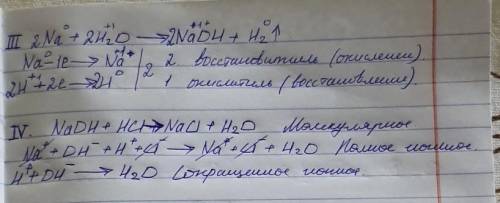 III 2Na⁰ + 2H₂⁺¹O → 2Na⁺¹OH + H₂⁰↑
Na⁰ - 1e → Na⁺¹ | 2 2 восстановитель (окисление).
2H⁺¹ + 2e → 2H⁰ | 1 окислитель (восстановление).
IV. NaOH + HCl → NaCl + H₂O Молекулярное
Na⁺ + OH⁻ + H⁺ + Cl⁻ → Na⁺ + Cl⁻ + H₂O Полное ионное.
H⁺ + OH⁻ → H₂O Сокращенное ионное.